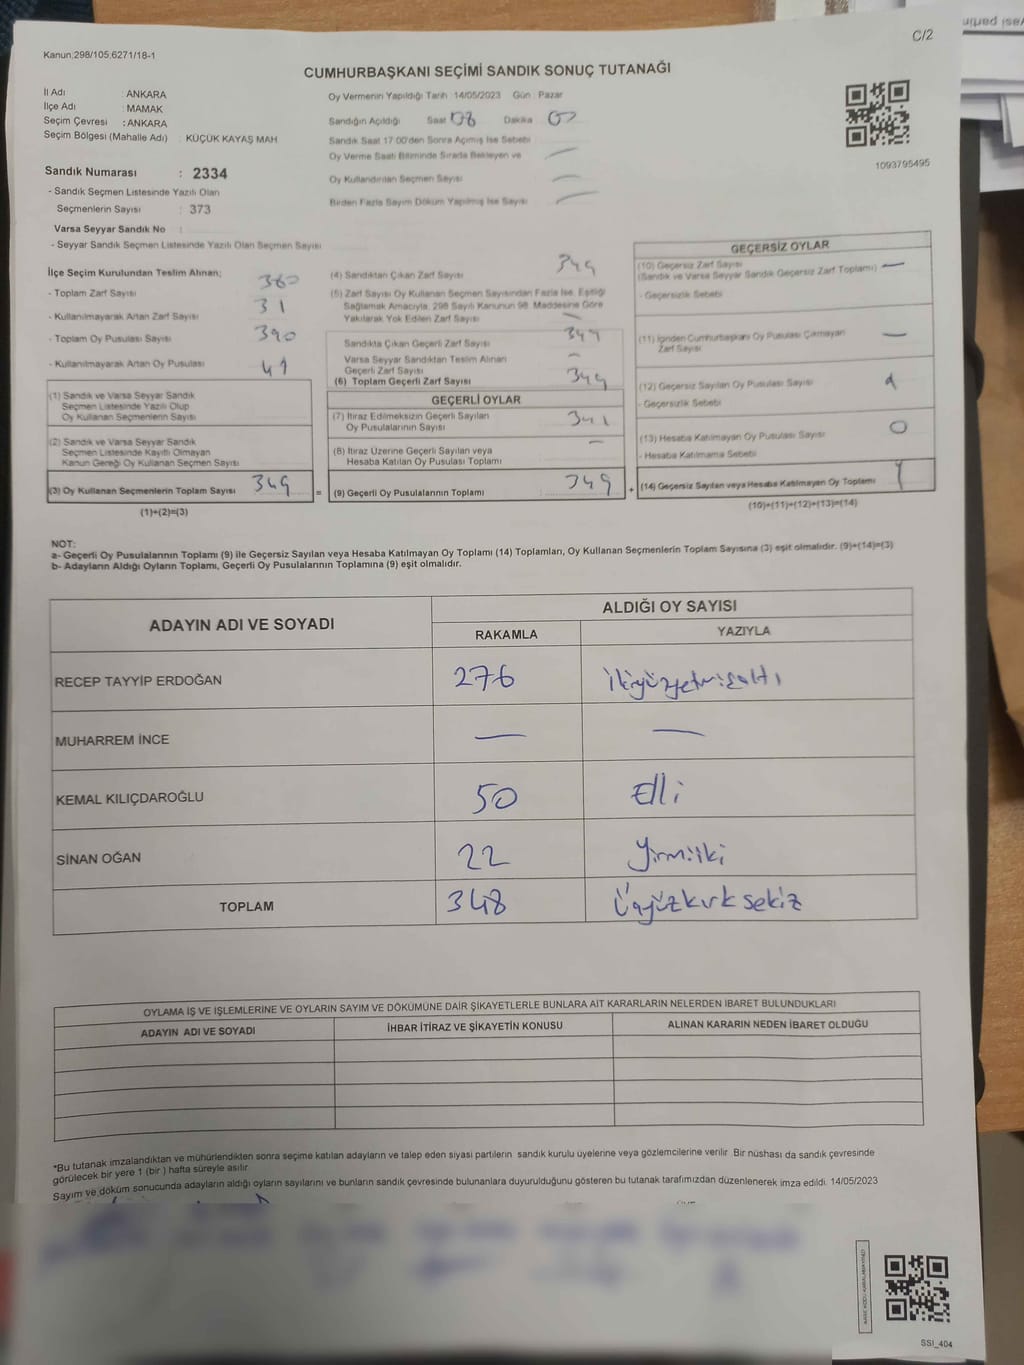 C/2
Kanun,298/105,6271/18-1
CUMHURBAŞKANI SEÇİMİ SANDIK SONUÇ TUTANAĞI
İl Adı : ANKARA
İlçe Adı : MAMAK
Seçim Çevresi : ANKARA
Seçim Bölgesi (Mahalle Adı) : KÜÇÜK KAYAŞ MAH
Oy Vermenin Yapıldığı Tarih :14/05/2023 Gün : Pazar
Sandığın Açıldığı Saat 08 Dakika 00
Sandık Saat 17:00'den Sonra Açımış İse Sebebi
Oy Verme Saati Bitiminde Sırada Bekleyen ve
Oy Kullandırılan Seçmen Sayısı
Birden Fazla Sayım Döküm Yapılmış İse Sayısı
1093795495
Sandık Numarası : 2334
- Sandık Seçmen Listesinde Yazılı Olan
Seçmenlerin Sayısı : 373
Varsa Seyyar Sandık No :
- Seyyar Sandık Seçmen Listesinde Yazılı Olan Seçmen Sayısı
İlçe Seçim Kurulundan Teslim Alınan;
- Toplam Zarf Sayısı 380
- Kullanılmayarak Artan Zarf Sayısı 31
- Toplam Oy Pusulası Sayısı 390
- Kullanılmayarak Artan Oy Pusulası 41
(1) Sandık ve Varsa Seyyar Sandık
Seçmen Listesinde Yazılı Olup
Oy Kullanan Seçmenlerin Sayısı
(2) Sandık ve Varsa Seyyar Sandık
Seçmen Listesinde Kayıtlı Olmayan
Kanun Gereği Oy Kullanan Seçmen Sayısı
(3) Oy Kullanan Seçmenlerin Toplam Sayısı 349 =
(1)+(2)=(3)
(4) Sandıktan Çıkan Zarf Sayısı 349
(5) Zarf Sayısı Oy Kullanan Seçmen Sayısından Fazla İse, Eşitliği
Sağlamak Amacıyla, 298 Sayılı Kanunun 98. Maddesine Göre
Yakılarak Yok Edilen Zarf Sayısı —
Sandıkta Çıkan Geçerli Zarf Sayısı 349
Varsa Seyyar Sandıktan Teslim Alınan
Geçerli Zarf Sayısı —
(6) Toplam Geçerli Zarf Sayısı 349
GEÇERLİ OYLAR
(7) İtiraz Edilmeksizin Geçerli Sayılan
Oy Pusulalarının Sayısı 341
(8) İtiraz Üzerine Geçerli Sayılan veya
Hesaba Katılan Oy Pusulası Toplamı —
(9) Geçerli Oy Pusulalarının Toplamı 349 +
GEÇERSİZ OYLAR
(10) Geçersiz Zarf Sayısı
(Sandık ve Varsa Seyyar Sandık Geçersiz Zarf Toplamı) —
- Geçersizlik Sebebi
(11) İçinden Cumhurbaşkanı Oy Pusulası Çıkmayan
Zarf Sayısı —
(12) Geçersiz Sayılan Oy Pusulası Sayısı 1
- Geçersizlik Sebebi
(13) Hesaba Katılmayan Oy Pusulası Sayısı 0
- Hesaba Katılmama Sebebi
(14) Geçersiz Sayılan veya Hesaba Katılmayan Oy Toplamı 1
(10)+(11)+(12)+(13)=(14)
NOT:
a- Geçerli Oy Pusulalarının Toplamı (9) ile Geçersiz Sayılan veya Hesaba Katılmayan Oy Toplamı (14) Toplamları, Oy Kullanan Seçmenlerin Toplam Sayısına (3) eşit olmalıdır. (9)+(14)=(3)
b- Adayların Aldığı Oyların Toplamı, Geçerli Oy Pusulalarının Toplamına (9) eşit olmalıdır.
ADAYIN ADI VE SOYADI
ALDIĞI OY SAYISI
RAKAMLA YAZIYLA
RECEP TAYYİP ERDOĞAN 276 ikiyüzyetmişaltı
MUHARREM İNCE — —
KEMAL KILIÇDAROĞLU 50 Elli
SİNAN OĞAN 22 Yirmiiki
TOPLAM 348 Üçyüzkırk sekiz
OYLAMA İŞ VE İŞLEMLERİNE VE OYLARIN SAYIM VE DÖKÜMÜNE DAİR ŞİKAYETLERLE BUNLARA AİT KARARLARIN NELERDEN İBARET BULUNDUKLARI
ADAYIN ADI VE SOYADI İHBAR İTİRAZ VE ŞİKAYETİN KONUSU ALINAN KARARIN NEDEN İBARET OLDUĞU
*Bu tutanak imzalandıktan ve mühürlendikten sonra seçime katılan adayların ve talep eden siyasi partilerin sandık kurulu üyelerine veya gözlemcilerine verilir. Bir nüshası da sandık çevresinde
görülecek bir yere 1 (bir ) hafta süreyle asılır.
Sayım ve döküm sonucunda adayların aldığı oyların sayılarını ve bunların sandık çevresinde bulunanlara duyurulduğunu gösteren bu tutanak tarafımızdan düzenlenerek imza edildi. 14/05/2023
SSI_404